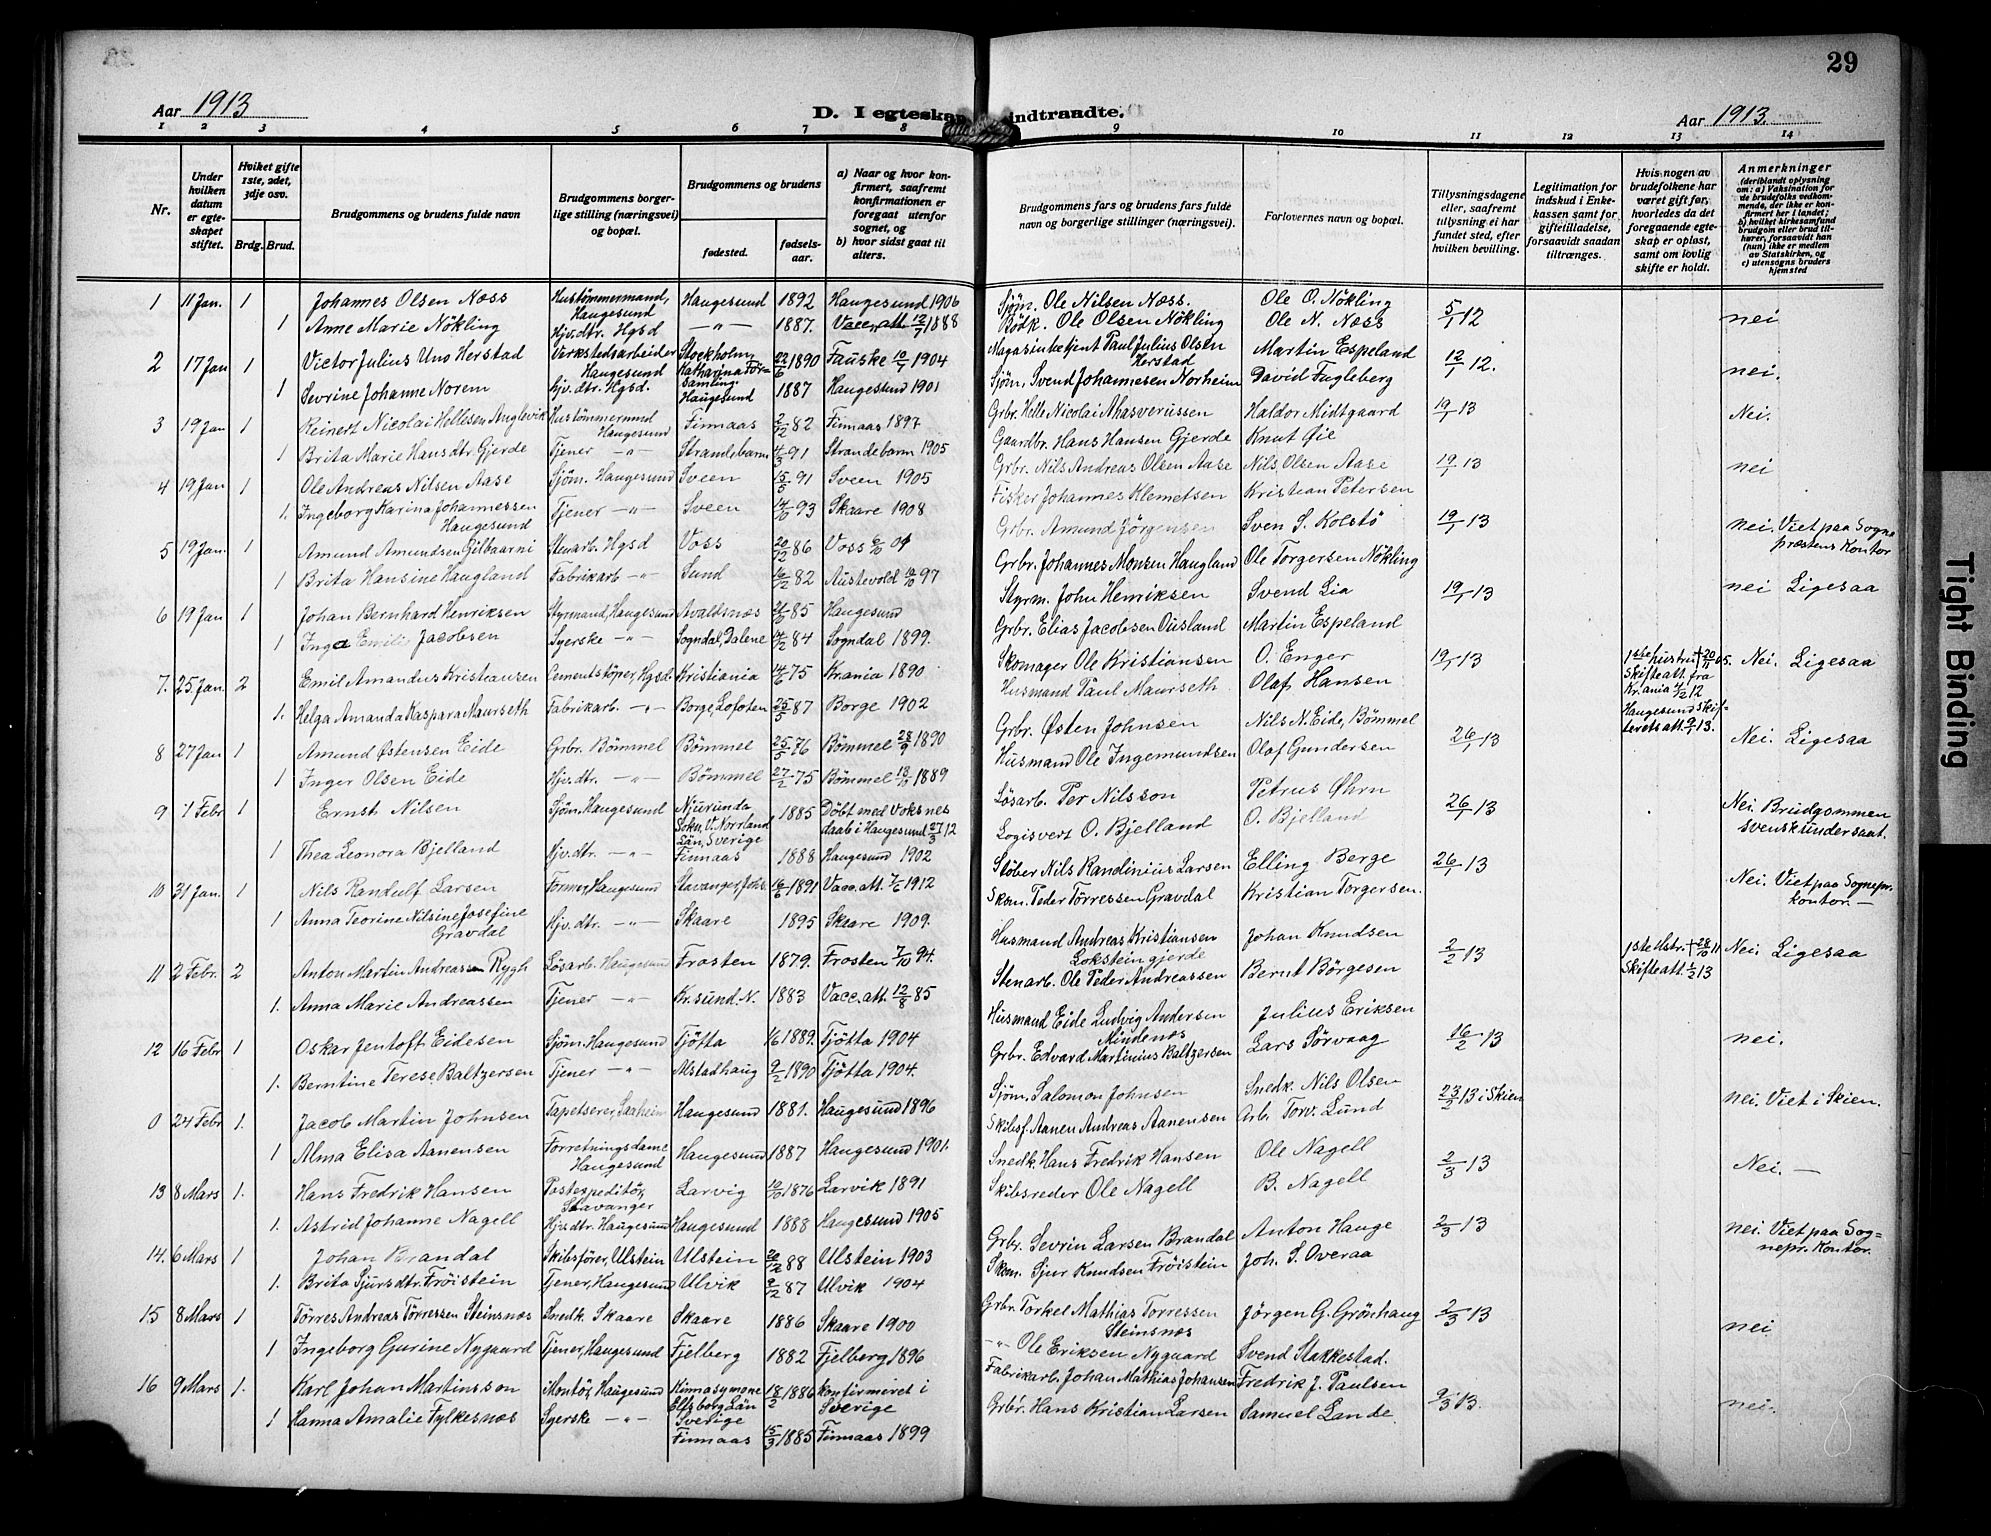 29
Aar 1913
D. I egteskap indtraadte.
Aar 1913.
1 2 3 4 5 6 7 8 9. 10 11 12 13 14
Nr.
Under hvilken datum er egteskapet stiftet.
Hvilket gifte 1ste, 2det, 3dje osv.
Brdg. Brud.
Brudgommens og brudens fulde navn
Brudgommens borgerlige stilling (næringsvei) og bopæl.
Brudgommens og brudens
fødested.
fødselsaar.
a) Naar og hvor konfirmert, saafremt konfirmationen er foregaat utenfor sognet, og
b) hvor sidst gaat til alters.
Brudgommens fars og brudens fars fulde navn og borgerlige stillinger (næringsvei).
Forlovernes navn og bopæl.
Tillysningsdagene eller, saafremt tillysning ei har fundet sted, efter hvilken bevilling.
Legitimation for indskud i Enkekassen samt for giftetilladelse, forsaavidt saadan tiltrænges.
Hvis nogen av brudefolkene har været gift før, hvorledes da det foregaaende egteskap er opløst, samt om lovlig skifte er holdt.
Anmerkninger
(deriblandt oplysning om: a) Vaksination for de brudefolks vedkommende, der ikke er konfirmert her i landet; b) hvilket kirkesamfund brudgom eller brud tilhører, forsaavidt han (hun) ikke er medlem av Statskirken, og c) utensogns bruders hjemsted
1 11 Jan. 1 Johannes Olsen Næss Hustömmermand, Haugesund Haugesund 1892 Haugesund 1906 Sjøm. Ole Nilsen Næss. Ole O. Nökling 5/1 12 nei
1 Anne Marie Nökling Hjv. dtr. Hgsd —"— 1887. Vacc. att. 12/7 1888 Bödk. Ole Olsen Nökling Ole N. Næss
2 17 Jan 1 Victor Julius Uno Herstad Verkstedsarbeider Haugesund Stockholm, Katharina Församling. 22/6 1890 Fauske 10/7 1904 Magasinbetjent Paul Julius Olsen Herstad Martin Espeland 12/1 12. nei.
1 Sevrine Johanne Norem Hjv. dtr. Hgsd. Haugesund 1887 Haugesund 1901 Sjøm. Svend Johannesen Norheim David Fugleberg
3 19 Jan 1 Reinert Nicolai Hellesen Auglevik Hustömmermnd Haugesund Finnaas 2/12 82 Finnaas 1897 Grbr. Helle Nicolai Ahasverussen Haldor Midtgaard 19/1 13 Nei.
1 Brita Marie Hansdtr Gjerde Tjener —"— Strandebarm 4/3 91 Strandebarm 1905 Gaardbr. Hans Hansen Gjerde Knut Øie
4 19 Jan 1 Ole Andreas Nilsen Aase Sjöm. Haugesund Sveen 15/5 91 Sveen 1905 Grbr. Nils Andreas Olsen Aase Nils Olsen Aase 19/1 13 nei
1. Ingeborg Karina Johannessen Haugesund Tjener —"— Sveen 14/10 93 Skaare 1908 Fisker Johannes Klemetsen Kristian Petersen
5 19 Jan. 1 Amund Amundsen Gilbaarni Stenarb. Hgsd Voss 20/12 86 Voss 01 Grbr. Amund Jörgensen Sven S. Kolstö 19/1 13 nei. Viet paa Sognepræstens Kontor
1 Brita Hansine Haugland Fabrikarb —"— Sund 16/2 82 Austevold 97 Grbr. Johannes Monsen Haugland Ole Torgersen Nökling
6 19 Jan 1 Johan Bernhard Henriksen Styrmand, Haugesund Avaldsnæs 85 Haugesund Styrm. John Henriksen Svend Lia 19/1 13 nei Ligesaa
1 Inga Emilie Jacobsen Syerske —"— Sogndal, Dalene 14/12 84 Sogndal 1899. Grbr. Elias Jacobsen Ousland Martin Espeland
7. 25. Jan. 2 Emil Amandus Kristiansen Cementstöper, Hgsd. Kristiania 14/6 75 Krania 1890 Skomager Ole Kristiansen O. Enger 19/1 13 1ste hustru † 20/11 05. Skifteatt. fra Kr.ania 12 Haugesund skifteretsatt. 9/1 13. Nei. Ligesaa
1. Helga Amanda Kaspara Maurseth Fabrikarb. —"— Borge, Lofoten 25/5 87 Borge 1902 Husmand Paul Maurseth Olaf Hansen
8 27 Jan 1 Amund Østensen Eide Grbr. Bömmel Bömmel 25/5 76 Bömmel 28/9 1890 Grbr. Østen Johnsen Nils N. Eide, Bömmel 26/1 13 Nei. Ligesaa
1 Inger Olsen Eide Hjv. dtr. —"— Bömmel 27/2 75 Bömmel 1889 Husmand Ole Ingemundsen Olaf Gundersen
9 1 Febr 1 Ernst Nilsen Sjöm. Haugesund Njurunda Sokn, V. Norrland Län, Sverige 1885 Döbt med voksnes daab i Haugesund 27/3 12 Lösarb. Per Nilsson Petrus Øhrn 26/1 13 Nei. Brudgommen svensk undersaat.
1 Thea Leonora Bjelland Hjv. dtr. —"— Finnaas 1888 Haugesund 1902 Logisvert O. Bjelland O. Bjelland
10 31 Jan. 1 Nils Randulf Larsen Former, Haugesund Stavanger, Johs. 16/6 1891 Vacc. att. 1912 Støber Nils Randinius Larsen Elling Berge 26/1 13 Nei. Viet paa Sognepr. kontor.—
1 Anna Teorine Nilsine Josefine Gravdal Hjv. dtr. —"— Skaare 1895 Skaare 1909. Skom. Peder Törressen Gravdal Kristian Torgersen.
11 2 Febr. 2 Anton Martin Andreassen Rygh Lösarb. Haugesund Frosten 1879. Frosten 7/10 94. Husmand Andreas Kristiansen Loksteingjerde Johan Knudsen 2/2 13 1ste Hstr. † 28/10 11 Skifteatt. 1/2 13 Nei. Ligesaa
1. Anna Marie Andreassen Tjener —"— Kr.sund. N. 1883 Vacc. att. 12/8 85 Stenarb. Ole Peder Andreassen Bernt Börgesen
12 16 Febr 1 Oskar Jentoft Eidesen Sjöm. Haugesund Tjötta 1889. Tjötta 1904 Husmand Eide Ludvig Andersen Mindenæs Julius Eriksen 16/2 13 nei.
1. Berntine Terese Baltzersen Tjener —"— Alstadhaug 9/2 1890 Tjötta 1904. Grbr. Edvard Martinius Baltzersen Lars Sørvaag
0 24 Febr 1. Jacob Martin Johnsen Tapetserer, Saxheim Haugesund 1881. Haugesund 1896 Sjöm. Salomon Johnsen Snedk. Nils Olsen 23/2 13 i Skien nei. Viet i Skien.
1 Alma Elisa Aanensen Forretningsdame Haugesund Haugesund 1887 Haugesund 1901. Skibsf. Aanen Andreas Aanensen Arb. Torv. Lund
13 8 Mars 1. Hans Fredrik Hansen Postexpeditör, Stavanger Larvig 10/10 1876 Larvik 1891 Snedk. Hans Fredrik Hansen Ole Nagell 2/3 13 Nei. —
1. Astrid Johanne Nagell Hjv. dtr. Haugesund Haugesund 1888 Haugesund 1905 Skibsreder Ole Nagell B. Nagell
14. 6 Mars 1 Johan Brandal Skibsförer, Ulstein Ulstein 20/12 88 Ulstein 1903 Grbr. Sevrin Larsen Brandal Anton Hauge 2/3 13 nei. Viet paa Sognepr. Kontor.
1. Brita Sjursdtr. Fröistein Tjener, Haugesund Ulvik 9/12 87 Ulvik 1904 Skom. Sjur Knudsen Fröistein Joh. S. Overaa
15 8 Mars 1 Törres Andreas Törressen Steinsnæs Snedk. Skaare Skaare 1886 Skaare 1900 Grbr. Torkel Mathias Torressen Steinsnæs Jörgen G. Grönhaug 2/3 13 nei
1 Ingeborg Gurine Nygaard Tjener, Haugesund Fjelberg 1882 Fjelberg 1896 —"— Ole Eriksen Nygaard Svend Stakkestad.
16 9 Mars 1. Karl Johan Martinsson Montör, Haugesund Kinnasymone Elfsborg Län Sverige 18/2 1886 konfirmeret i Sverige Fabrikarb. Johan Mathias Johansen Fredrik J. Paulsen 9/3 13. nei.
1 Hanna Amalie Fylkesnæs Syerske —"— Finnaas 15/3 1885 Finnaas 1899 Grbr. Hans Kristian Larsen Samuel Lande.
Tight Binding